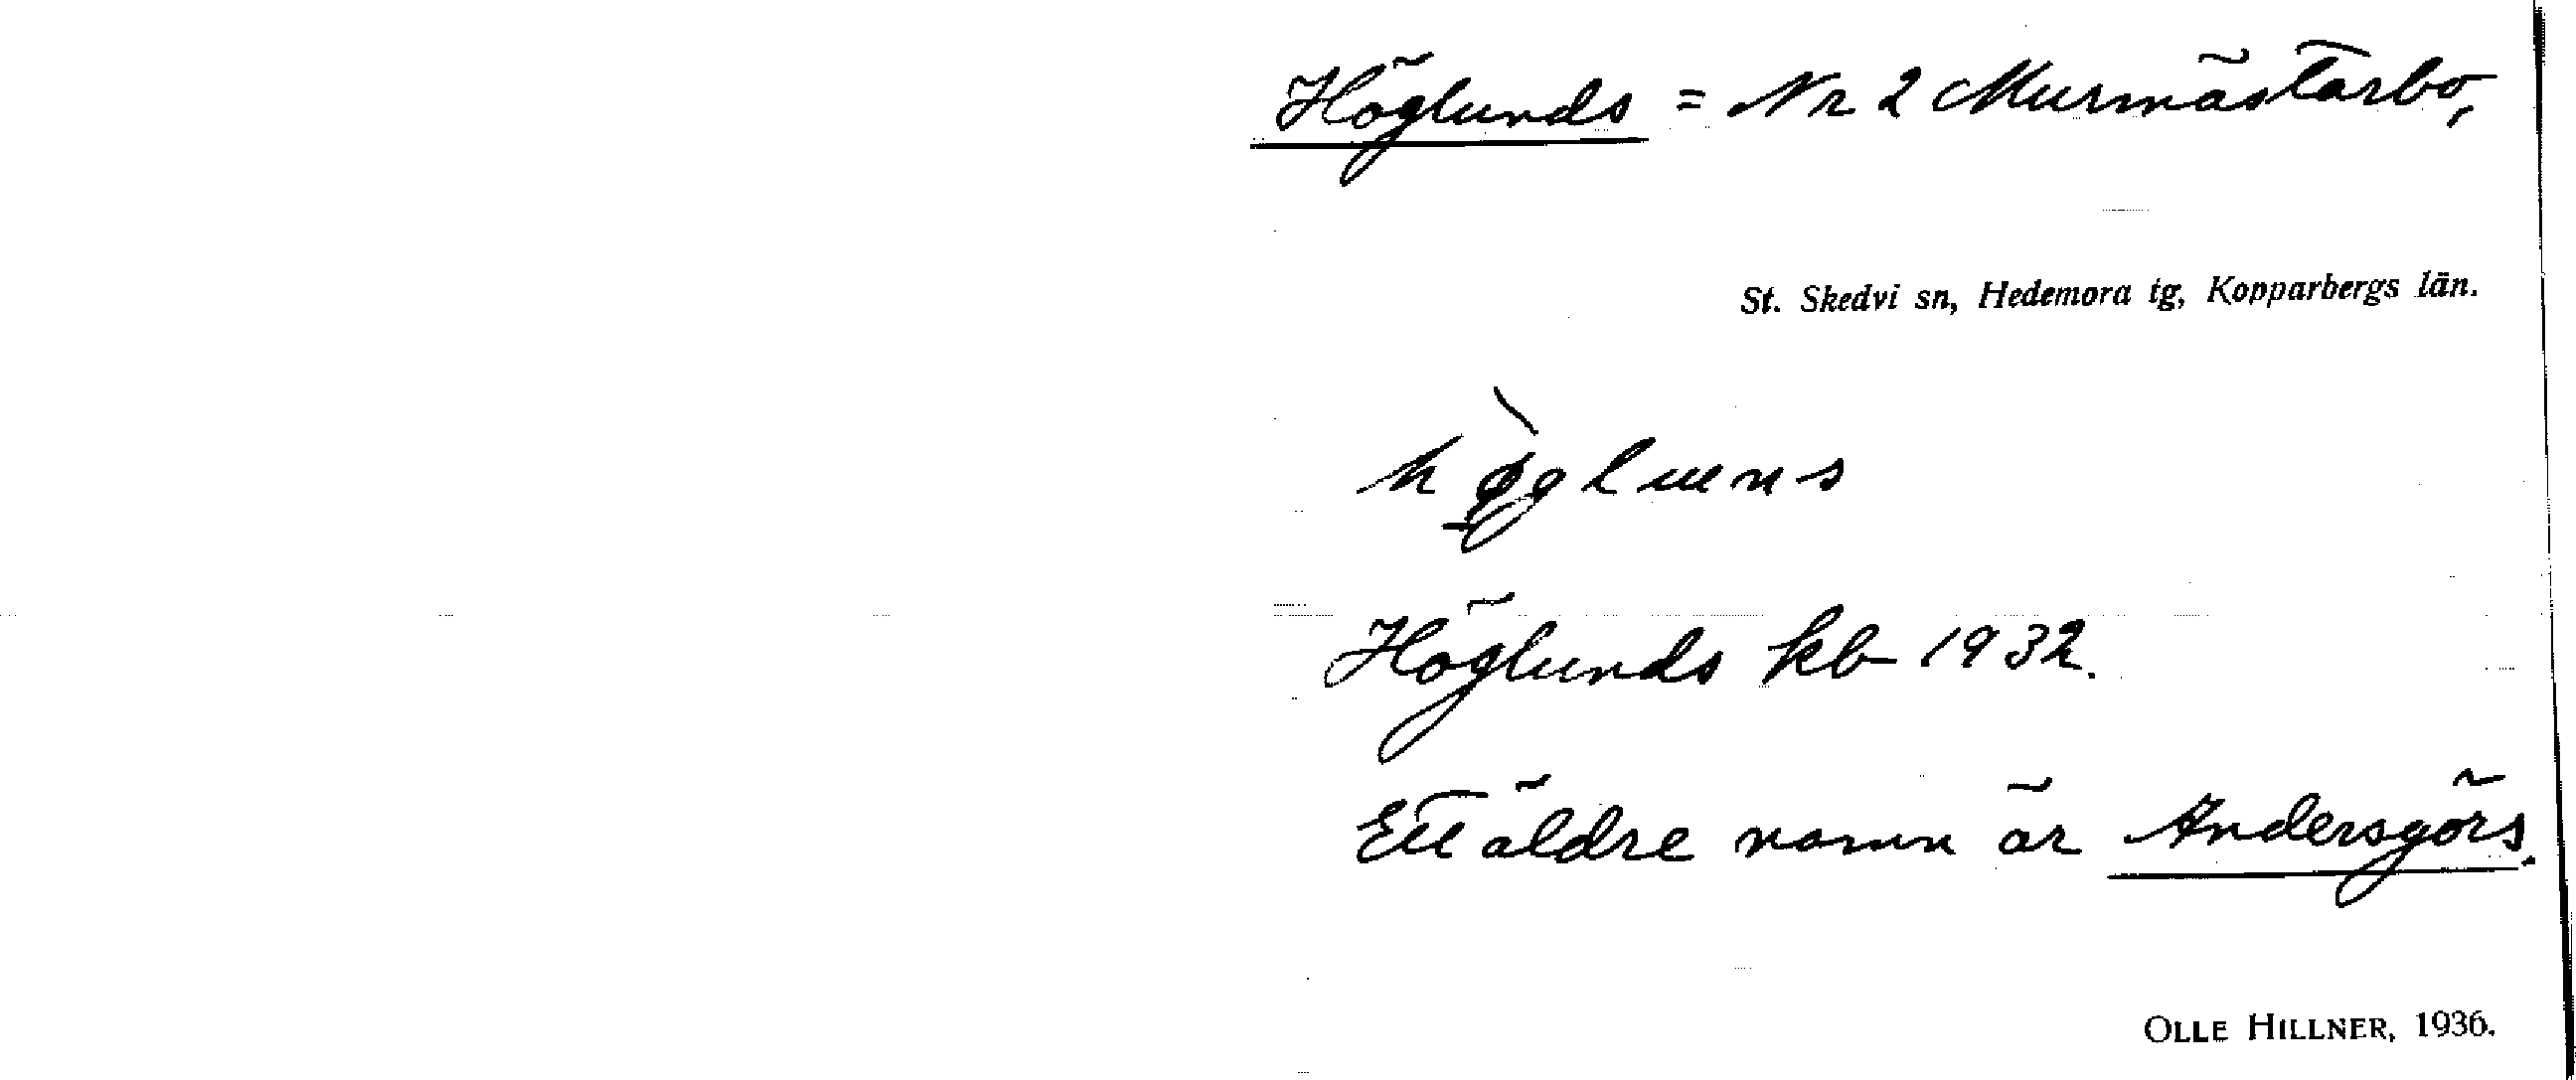 Höglunds = Nr 2 Murmästarbo,
St. Skedvi sn, Hedemora tg, Kopparbergs län.
Höglunds kb 1932.
Ett äldre namn är Andersgörs.
OLLE HILLNER, 1936.